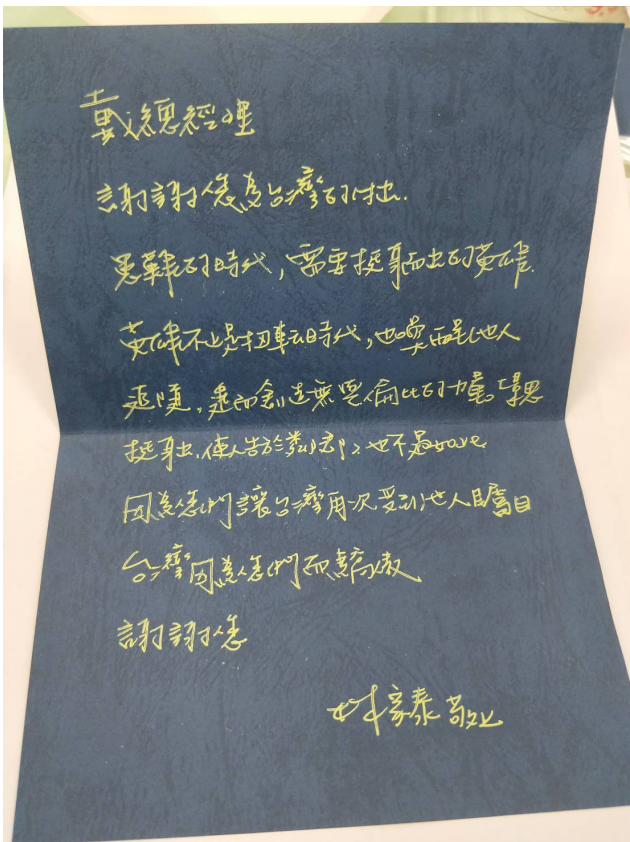 戴總經理
謝謝您為台灣的付出.
艱難的時代，需要挺身而出的英雄.
英雄不止是扭転時代，也喚醒他人
追隨，進而創造無與倫比的力量
挺身出
因為您們讓台灣再次受到他人矚目
台灣因為您們而驕傲
謝謝您
林家泰 敬上